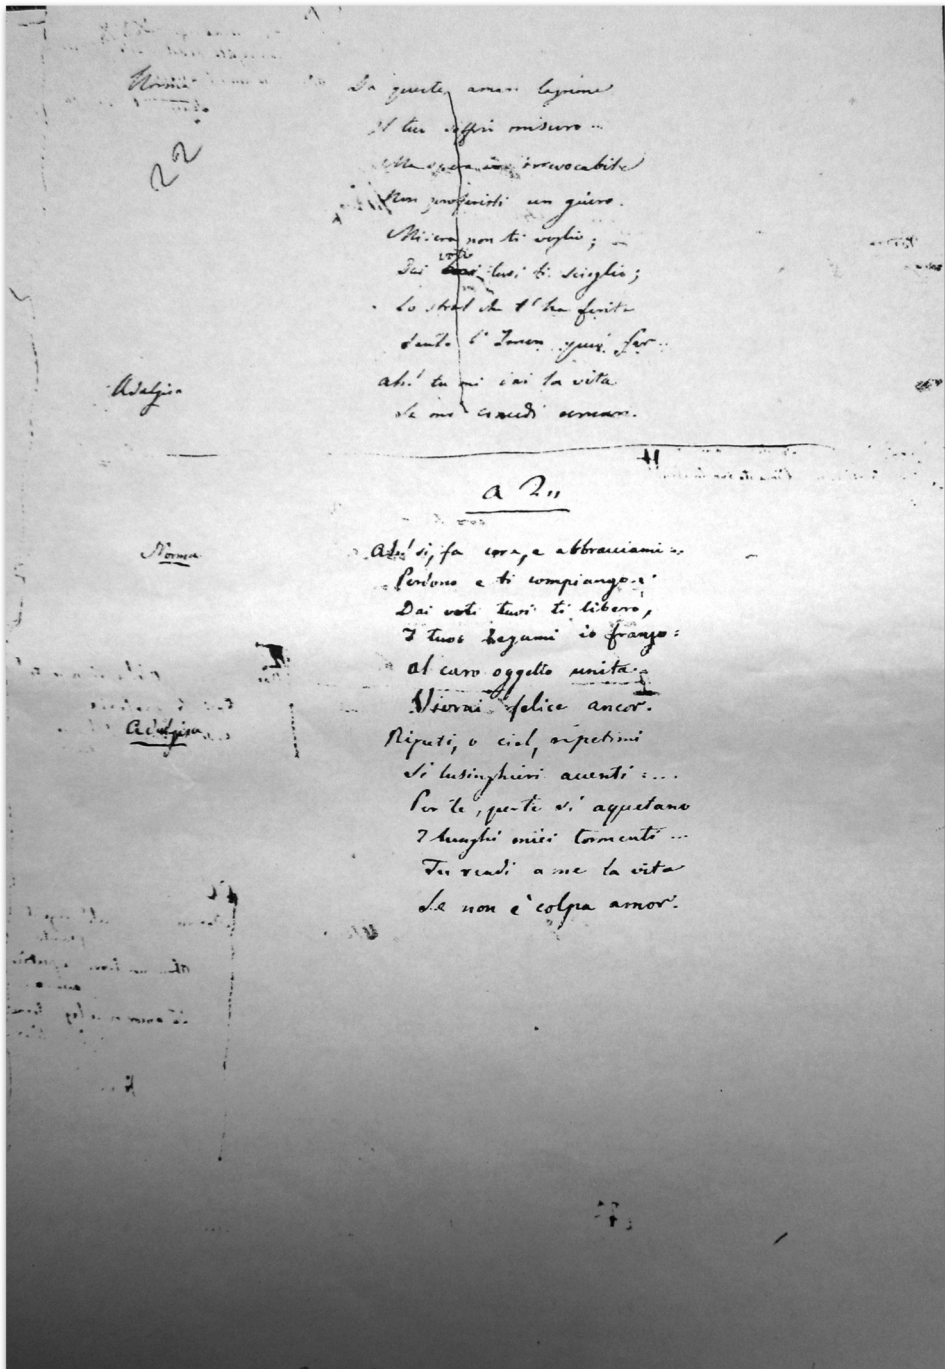 Norma Da queste amare lagrime
22
Il tuo soffrir misuro...
Ma ancora irrevocabile
Non proferisti un giuro.
Misera non ti voglio;
voti
Dai tuoi ti scioglio;
Lo stral che t'ha ferita
Adalgisa Ah! tu mi dai la vita
Se mi concedi amar.
a 2
Norma Ah! si, fa core, e abbracciami...
Perdono e ti compiango.
Dai voti tuoi ti libero,
I tuoi legami io frango:
Al caro oggetto unita
Vivrai felice ancor.
Adalgisa Ripeti, o ciel, ripetimi
Si lusinghieri accenti:...
Per te, per te si aquetano
I lunghi miei tormenti...
Tu rendi a me la vita
Se non è colpa amor.